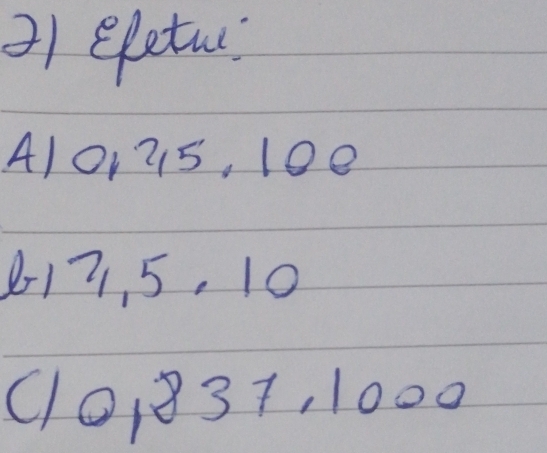 2) Efetue:
A) 0,75 . 100
b) 7,5 . 10
C) 0,837 . 1000